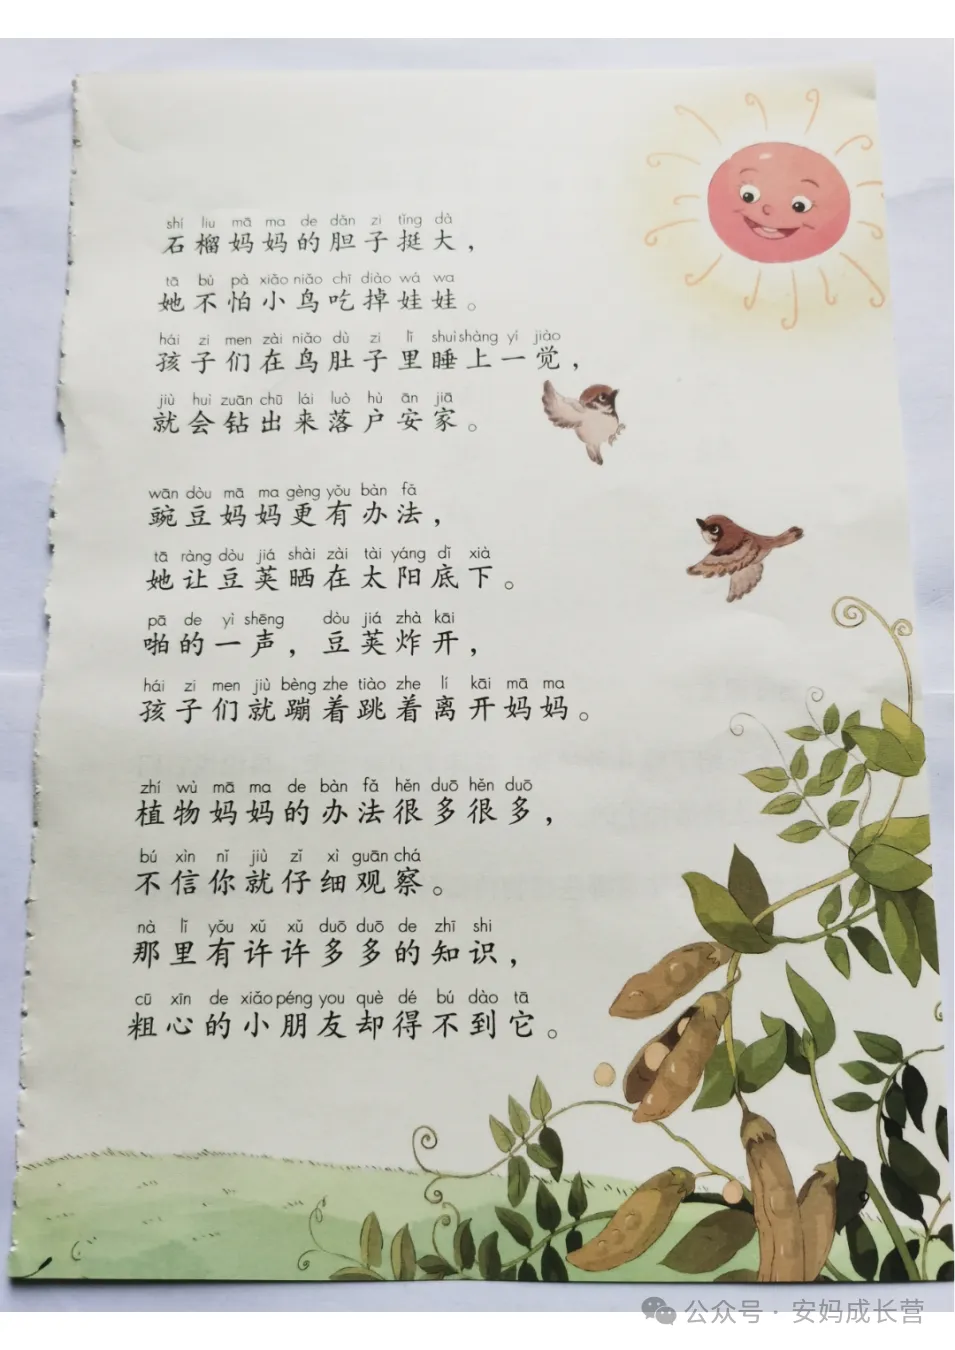 shí liu mā ma de dǎn zi tǐng dà
石榴妈妈的胆子挺大，
tā bú pà xiǎo niǎo chī diào wá wa
她不怕小鸟吃掉娃娃。
hái zi men zài niǎo dù zi lǐ shuì shàng yí jiào
孩子们在鸟肚子里睡上一觉，
jiù huì zuān chū lái luò hù ān jiā
就会钻出来落户安家。
wān dòu mā ma gèng yǒu bàn fǎ
豌豆妈妈更有办法，
tā ràng dòu jiá shài zài tài yáng dǐ xià
她让豆荚晒在太阳底下。
pā de yì shēng dòu jiá zhà kāi
啪的一声，豆荚炸开，
hái zi men jiù bèng zhe tiào zhe lí kāi mā ma
孩子们就蹦着跳着离开妈妈。
zhí wù mā ma de bàn fǎ hěn duō hěn duō
植物妈妈的办法很多很多，
bú xìn nǐ jiù zǐ xì guān chá
不信你就仔细观察。
nà lǐ yǒu xǔ xǔ duō duō de zhī shi
那里有许许多多的知识，
cū xīn de xiǎo péng you què dé bú dào tā
粗心的小朋友却得不到它。
公众号·安妈成长营